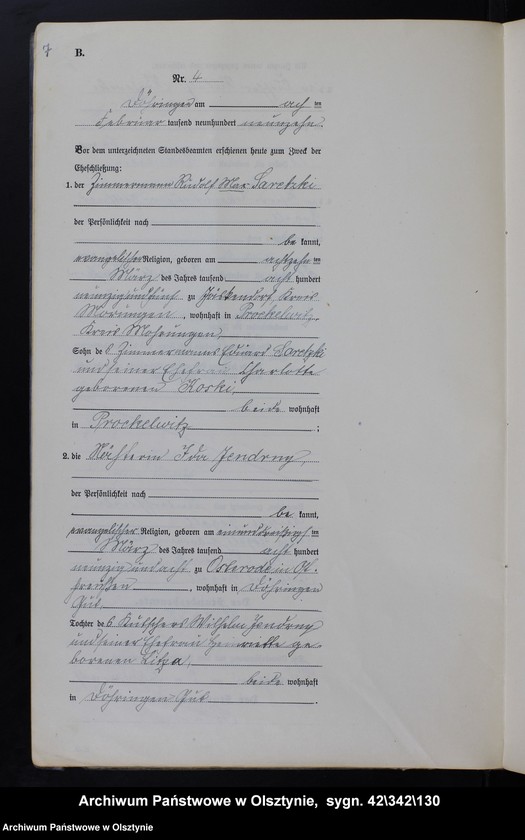 7
B.
Nr. 4
Döhringen am ach ten
Februar tausend neunhundert neunzehn.
Vor dem unterzeichneten Standesbeamten erschienen heute zum Zweck der
Eheschließung:
1. der Zimmermann Rudolf Max Saretzki
der Persönlichkeit nach
be kannt,
evangelischer Religion, geboren am achtzehn ten
März des Jahres tausend acht hundert
neunzigundfünf zu Kreis
Mohrungen, wohnhaft in Prockelwitz,
Kreis Mohrungen,
Sohn des Zimmermanns Eduard Saretzki
und seiner Ehefrau Charlotte
geborenen Koski,
beide wohnhaft
in Prockelwitz ;
2. die Näherin Ida Jendrny,
der Persönlichkeit nach
be kannt,
evangelischer Religion, geboren am einunddreißigs ten
März des Jahres tausend acht hundert
neunzigundacht zu Osterode in Ost-
preußen, wohnhaft in Döhringen
Gut
Tochter des Kutschers Wilhelm Jendrny
und seiner Ehefrau Henriette ge-
borenen Litza,
beide wohnhaft
in Döhringen Gut.
Archiwum Państwowe w Olsztynie, sygn. 42\342\130
Archiwum Państwowe w Olsztynie